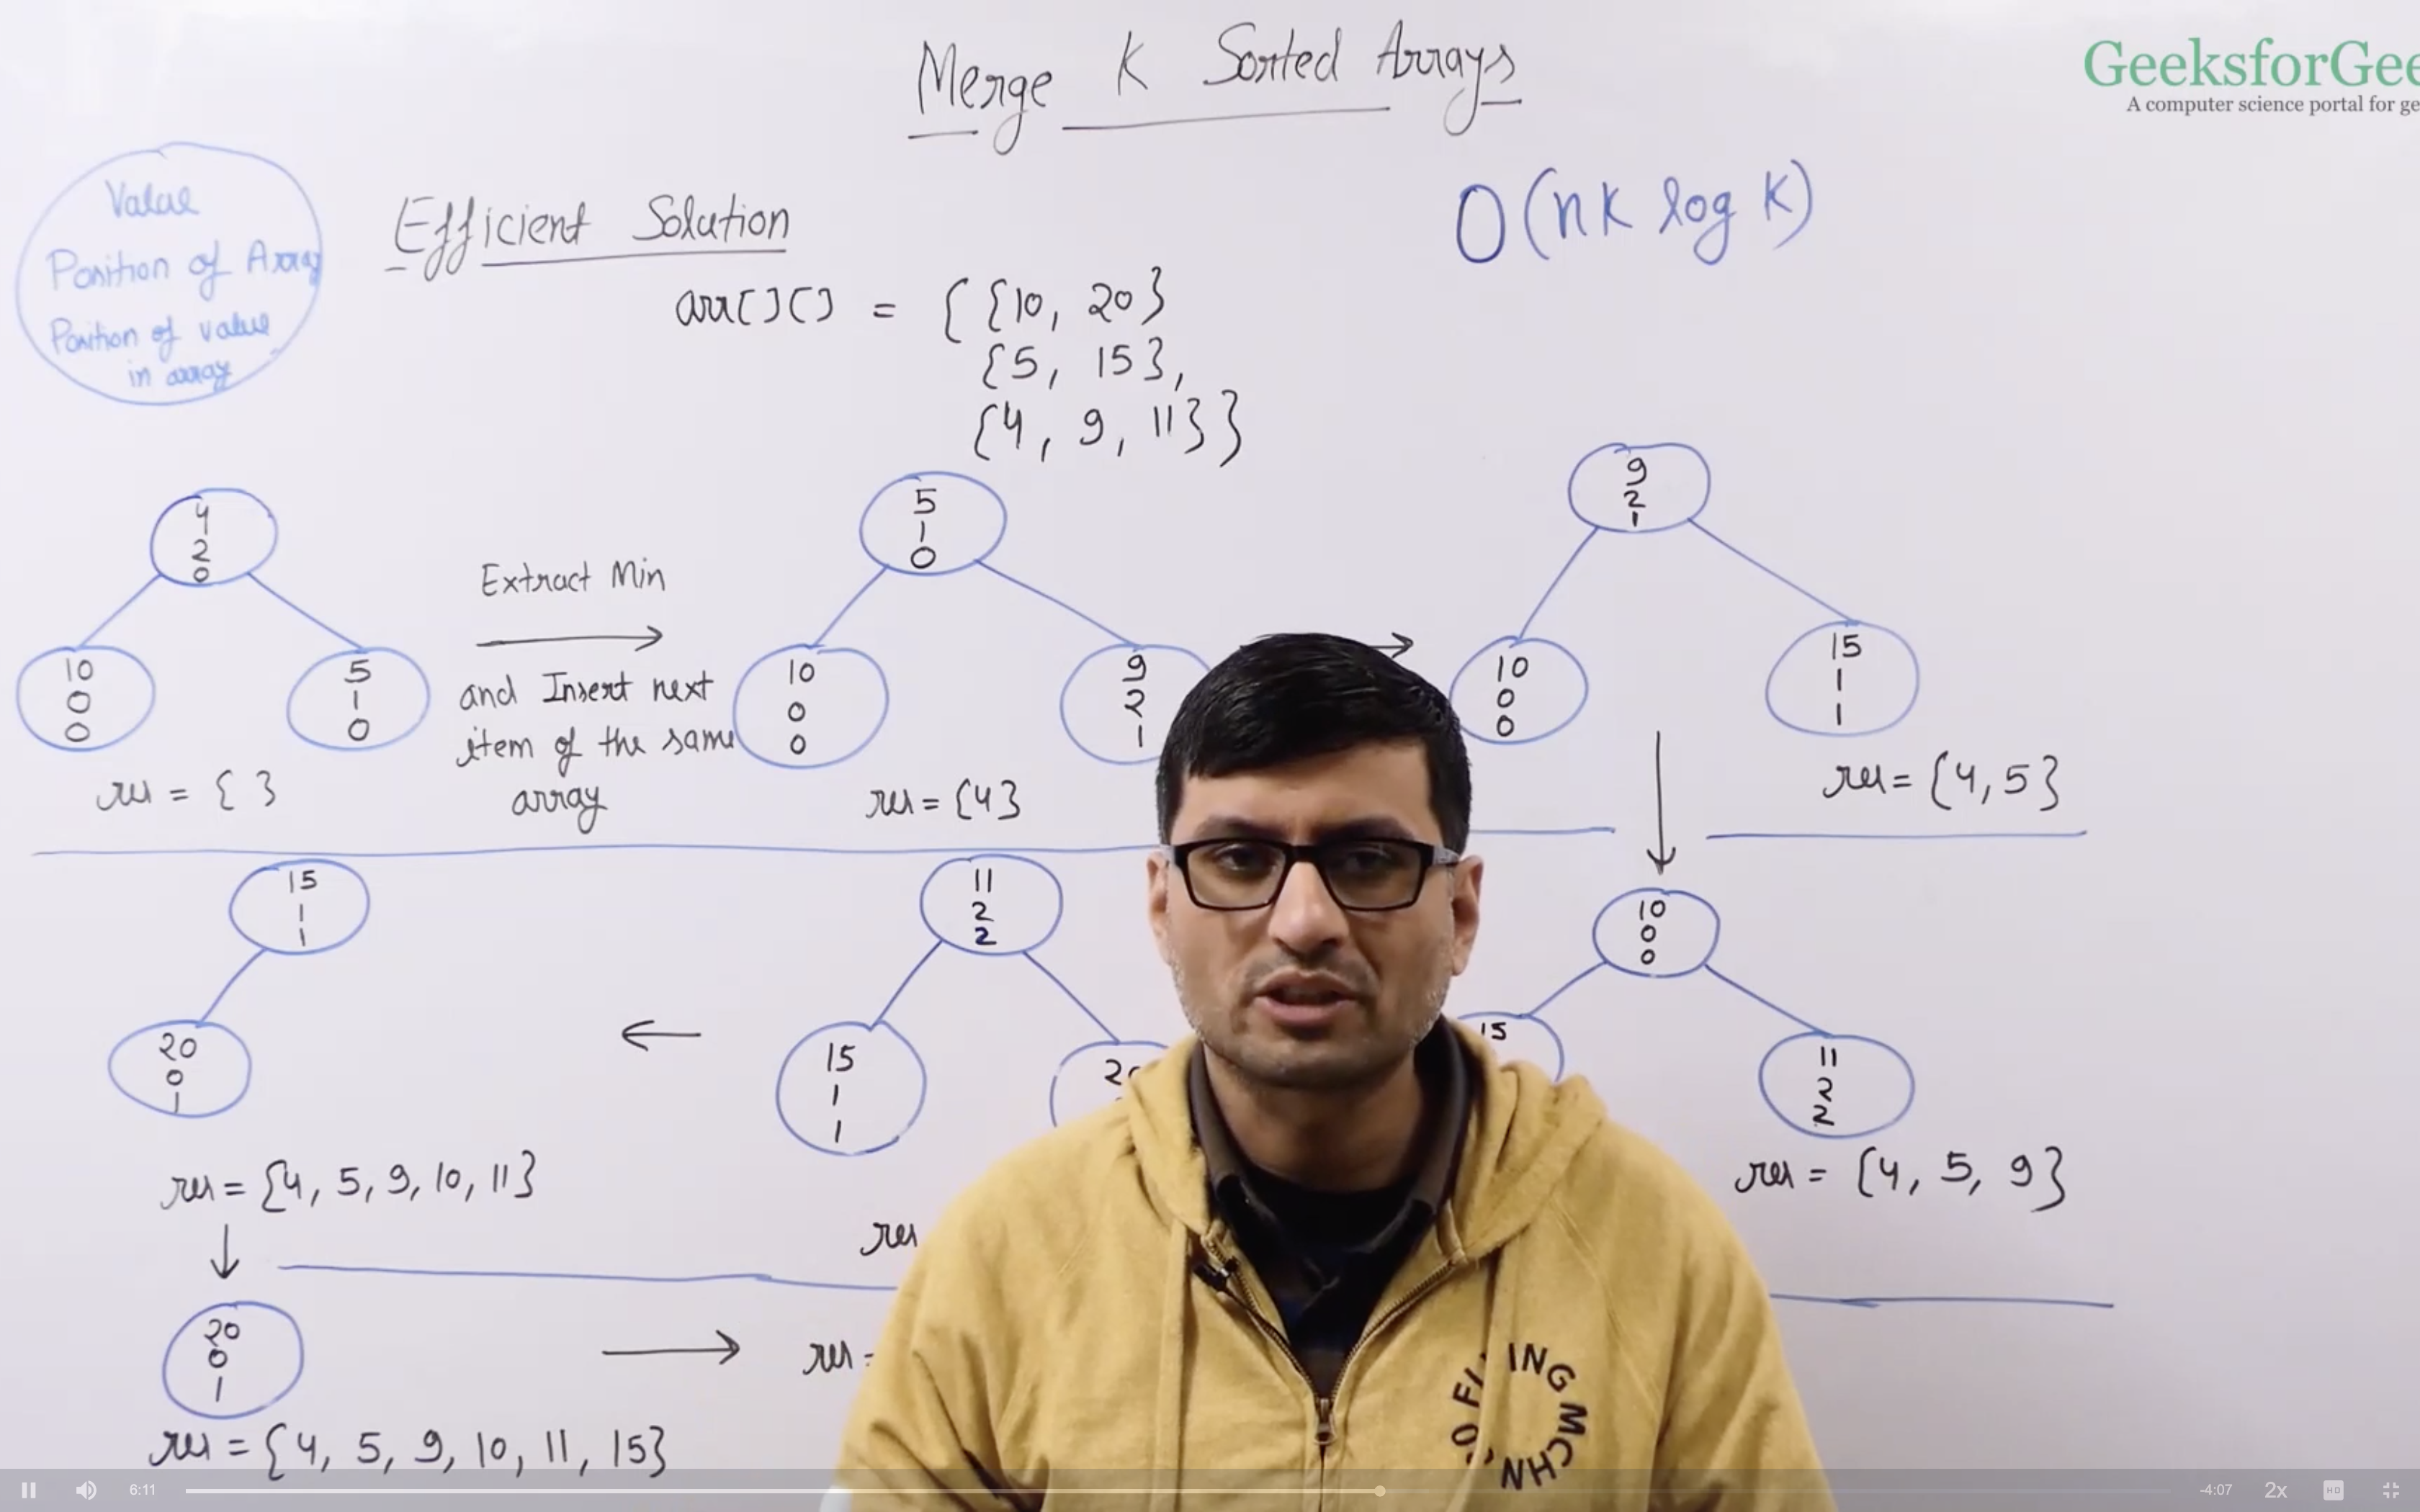 Merge K Sorted Arrays
GeeksforGee
A computer science portal for ge
Value
Position of Array
Position of value
in array
Efficient Solution
O(nk log k)
arr[][] = { {10, 20}
{5, 15},
{4, 9, 11}}
4
2
0
10
0
0
5
1
0
res = { }
Extract Min
and Insert next
item of the same
array
5
1
0
10
0
0
9
2
1
res = {4}
9
2
1
10
0
0
15
1
1
res = {4, 5}
10
0
0
15
11
2
2
res = {4, 5, 9}
11
2
2
15
1
1
res
15
1
1
20
0
1
res = {4, 5, 9, 10, 11}
20
0
1
res =
res = {4, 5, 9, 10, 11, 15}
ING
MCHN
6:11
-4:07
2x
HD